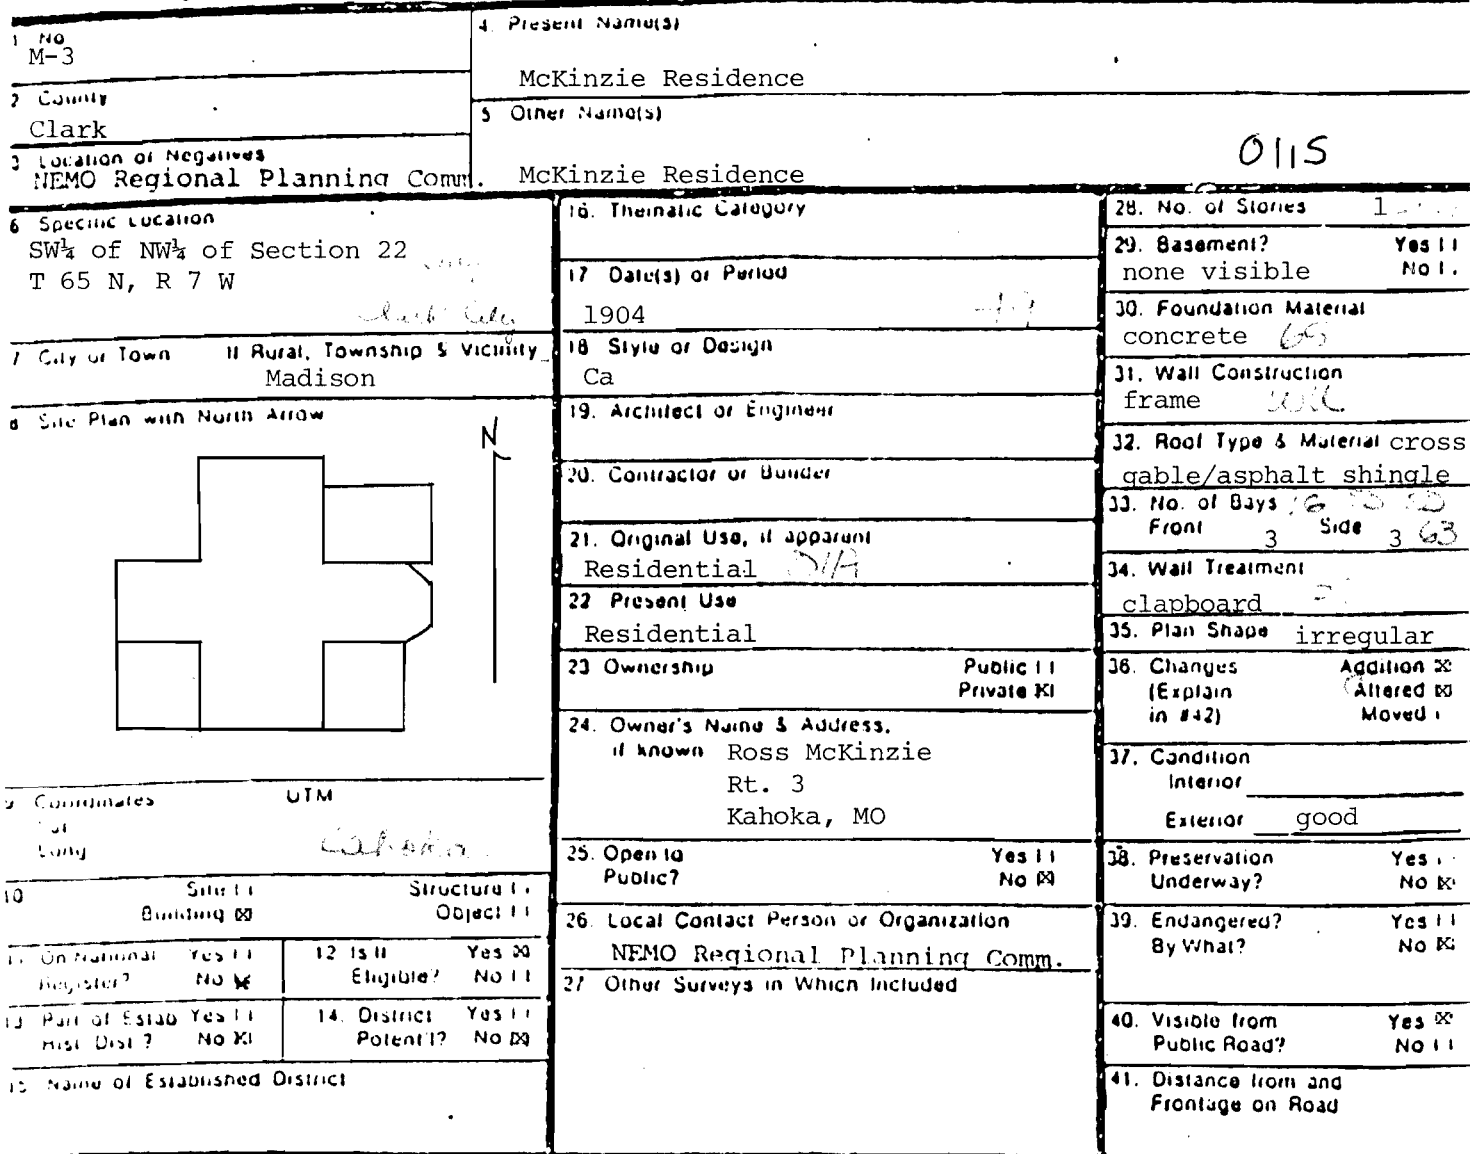 1 No
M-3
4. Present Name(s)
McKinzie Residence
2 County
Clark
5 Other Name(s)
McKinzie Residence
0115
3 Location of Negatives
NEMO Regional Planning Comm.
6 Specific Location
SW¼ of NW¼ of Section 22
T 65 N, R 7 W
7 City or Town If Rural, Township & Vicinity
Madison
8 Site Plan with North Arrow
N
9 Coordinates UTM
Lat
Long
Cahoka
10 Site
Structure
Building ☒
Object
11 On National Register? Yes
No ☒
12 Is it Eligible? Yes ☒
No
13 Part of Estab Hist. Dist.? Yes
No ☒
14. District Potent'l? Yes
No ☒
15 Name of Established District
16. Thematic Category
17 Date(s) or Period
1904
18 Style or Design
Ca
19. Architect or Engineer
20. Contractor or Builder
21. Original Use, if apparent
Residential
22 Present Use
Residential
23 Ownership Public
Private ☒
24. Owner's Name & Address,
if known Ross McKinzie
Rt. 3
Kahoka, MO
25. Open to Yes
Public? No ☒
26. Local Contact Person or Organization
NEMO Regional Planning Comm.
27 Other Surveys in Which Included
28. No. of Stories 1
29. Basement? Yes
none visible No
30. Foundation Material
concrete
31. Wall Construction
frame
32. Roof Type & Material cross
gable/asphalt shingle
33. No. of Bays
Front 3 Side 3 63
34. Wall Treatment
clapboard
35. Plan Shape irregular
36. Changes Addition ☒
(Explain Altered ☒
in #42) Moved
37. Condition
Interior
Exterior good
38. Preservation Yes
Underway? No ☒
39. Endangered? Yes
By What? No ☒
40. Visible from Yes ☒
Public Road? No
41. Distance from and
Frontage on Road